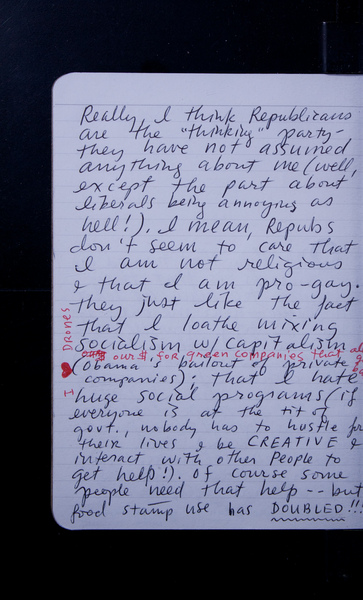 Really, I think Republicans
are the "thinking" party -
they have not assumed
anything about me (well,
except the part about
liberals being annoying as
hell!). I mean, Repubs
don't seem to care that
I am not religious
& that I am pro-gay.
they just like the fact
that I loathe mixing
socialism w/ capitalism
our $ for green companies that
(Obama's bailout of private
companies): that I hate
huge social programs (if
everyone is at the tit of
govt., nobody has to hustle for
their lives & be CREATIVE &
interact with other People to
get help!). Of course some
people need that help -- but
food stamp use has DOUBLED!!!
I ♥ DRONES